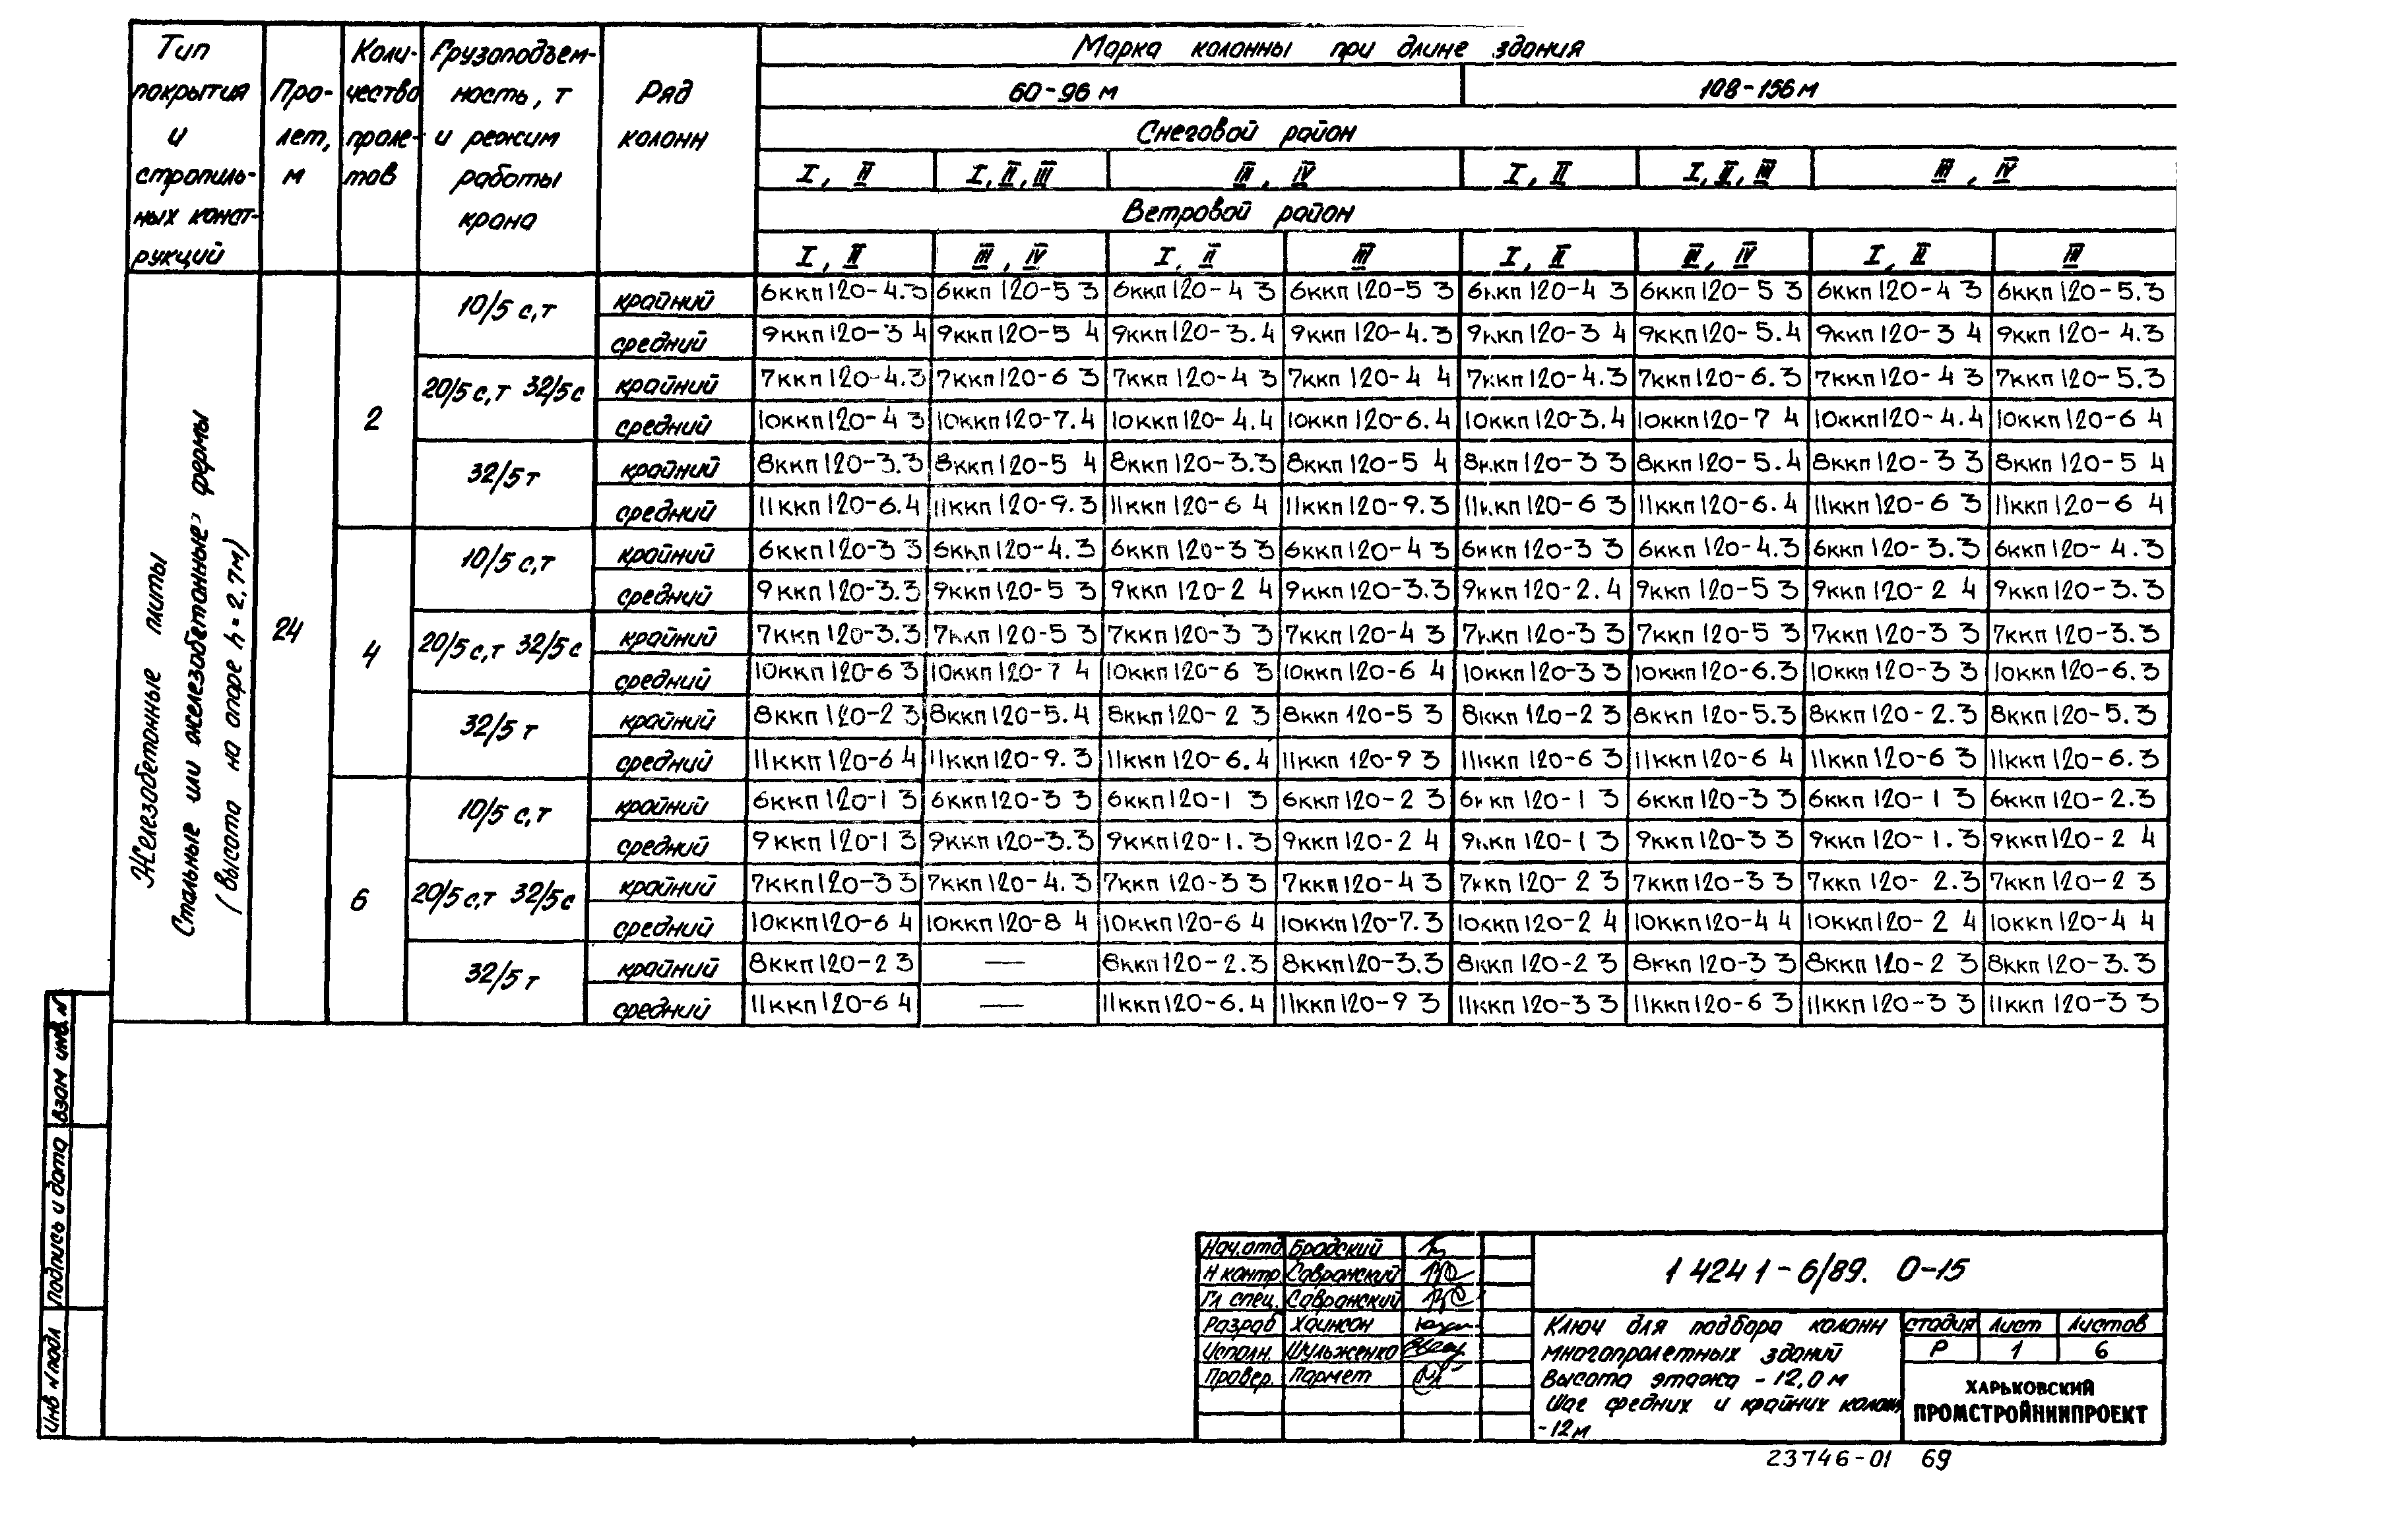 Тип покрытия и стропиль-ных конст-рукций
Про-лет, м
Коли-чество проле-тов
Грузоподъем-ность, т и режим работы крана
Ряд колонн
Марка колонны при длине здания
60-96 м
108-156 м
Снеговой район
I, II
I, II, III
III, IV
I, II
I, II, III
III, IV
Ветровой район
I, II
III, IV
I, II
III
I, II
III, IV
I, II
III
Железобетонные плиты
Стальные или железобетонные фермы
(высота на опоре h = 2,7м)
24
2
10/5 с,т
крайний 6ккп120-4.3 6ккп120-5 3 6ккп120-4 3 6ккп120-5 3 6ккп120-4 3 6ккп120-5 3 6ккп120-4 3 6ккп120-5.3
средний 9ккп120-3 4 9ккп120-5 4 9ккп120-3.4 9ккп120-4.3 9ккп120-3 4 9ккп120-5.4 9ккп120-3 4 9ккп120-4.3
20/5 с,т 32/5 с
крайний 7ккп120-4.3 7ккп120-6 3 7ккп120-4 3 7ккп120-4 4 7ккп120-4.3 7ккп120-6.3 7ккп120-4 3 7ккп120-5.3
средний 10ккп120-4 3 10ккп120-7.4 10ккп120-4.4 10ккп120-6.4 10ккп120-3.4 10ккп120-7 4 10ккп120-4.4 10ккп120-6 4
32/5 т
крайний 8ккп120-3.3 8ккп120-5 4 8ккп120-3.3 8ккп120-5 4 8ккп120-3 3 8ккп120-5.4 8ккп120-3 3 8ккп120-5 4
средний 11ккп120-6.4 11ккп120-9.3 11ккп120-6 4 11ккп120-9.3 11ккп120-6 3 11ккп120-6.4 11ккп120-6 3 11ккп120-6 4
4
10/5 с,т
крайний 6ккп120-3 3 6ккп120-4.3 6ккп120-3 3 6ккп120-4 3 6ккп120-3 3 6ккп120-4.3 6ккп120-3.3 6ккп120-4.3
средний 9ккп120-3.3 9ккп120-5 3 9ккп120-2 4 9ккп120-3.3 9ккп120-2.4 9ккп120-5 3 9ккп120-2 4 9ккп120-3.3
20/5 с,т 32/5 с
крайний 7ккп120-3.3 7ккп120-5 3 7ккп120-3 3 7ккп120-4 3 7ккп120-3 3 7ккп120-5 3 7ккп120-3 3 7ккп120-3.3
средний 10ккп120-6 3 10ккп120-7 4 10ккп120-6 3 10ккп120-6 4 10ккп120-3 3 10ккп120-6.3 10ккп120-3 3 10ккп120-6.3
32/5 т
крайний 8ккп120-2 3 8ккп120-5.4 8ккп120-2 3 8ккп120-5 3 8ккп120-2 3 8ккп120-5.3 8ккп120-2.3 8ккп120-5.3
средний 11ккп120-6 4 11ккп120-9.3 11ккп120-6.4 11ккп120-9 3 11ккп120-6 3 11ккп120-6 4 11ккп120-6 3 11ккп120-6.3
6
10/5 с,т
крайний 6ккп120-1 3 6ккп120-3 3 6ккп120-1 3 6ккп120-2 3 6ккп120-1 3 6ккп120-3 3 6ккп120-1 3 6ккп120-2.3
средний 9ккп120-1 3 9ккп120-3.3 9ккп120-1.3 9ккп120-2 4 9ккп120-1 3 9ккп120-3 3 9ккп120-1.3 9ккп120-2 4
20/5 с,т 32/5 с
крайний 7ккп120-3 3 7ккп120-4.3 7ккп120-3 3 7ккп120-4 3 7ккп120-2 3 7ккп120-3 3 7ккп120-2.3 7ккп120-2 3
средний 10ккп120-6 4 10ккп120-8 4 10ккп120-6 4 10ккп120-7.3 10ккп120-2 4 10ккп120-4 4 10ккп120-2 4 10ккп120-4 4
32/5 т
крайний 8ккп120-2 3 — 8ккп120-2.3 8ккп120-3.3 8ккп120-2 3 8ккп120-3 3 8ккп120-2 3 8ккп120-3.3
средний 11ккп120-6 4 — 11ккп120-6.4 11ккп120-9 3 11ккп120-3 3 11ккп120-6 3 11ккп120-3 3 11ккп120-3 3
Взам инв. №
Подпись и дата
Инв № подл
Нач.отд Бродский
Н контр Савранский
Гл спец. Савранский
Разраб Хаинсон
Исполн. Шульженко
Провер. Пармет
1 424 1-6/89. 0-15
Ключ для подбора колонн
многопролетных зданий
Высота этажа - 12,0 м
Шаг средних и крайних колонн
-12 м
стадия лист листов
Р 1 6
ХАРЬКОВСКИЙ
ПРОМСТРОЙНИИПРОЕКТ
23746-01 69